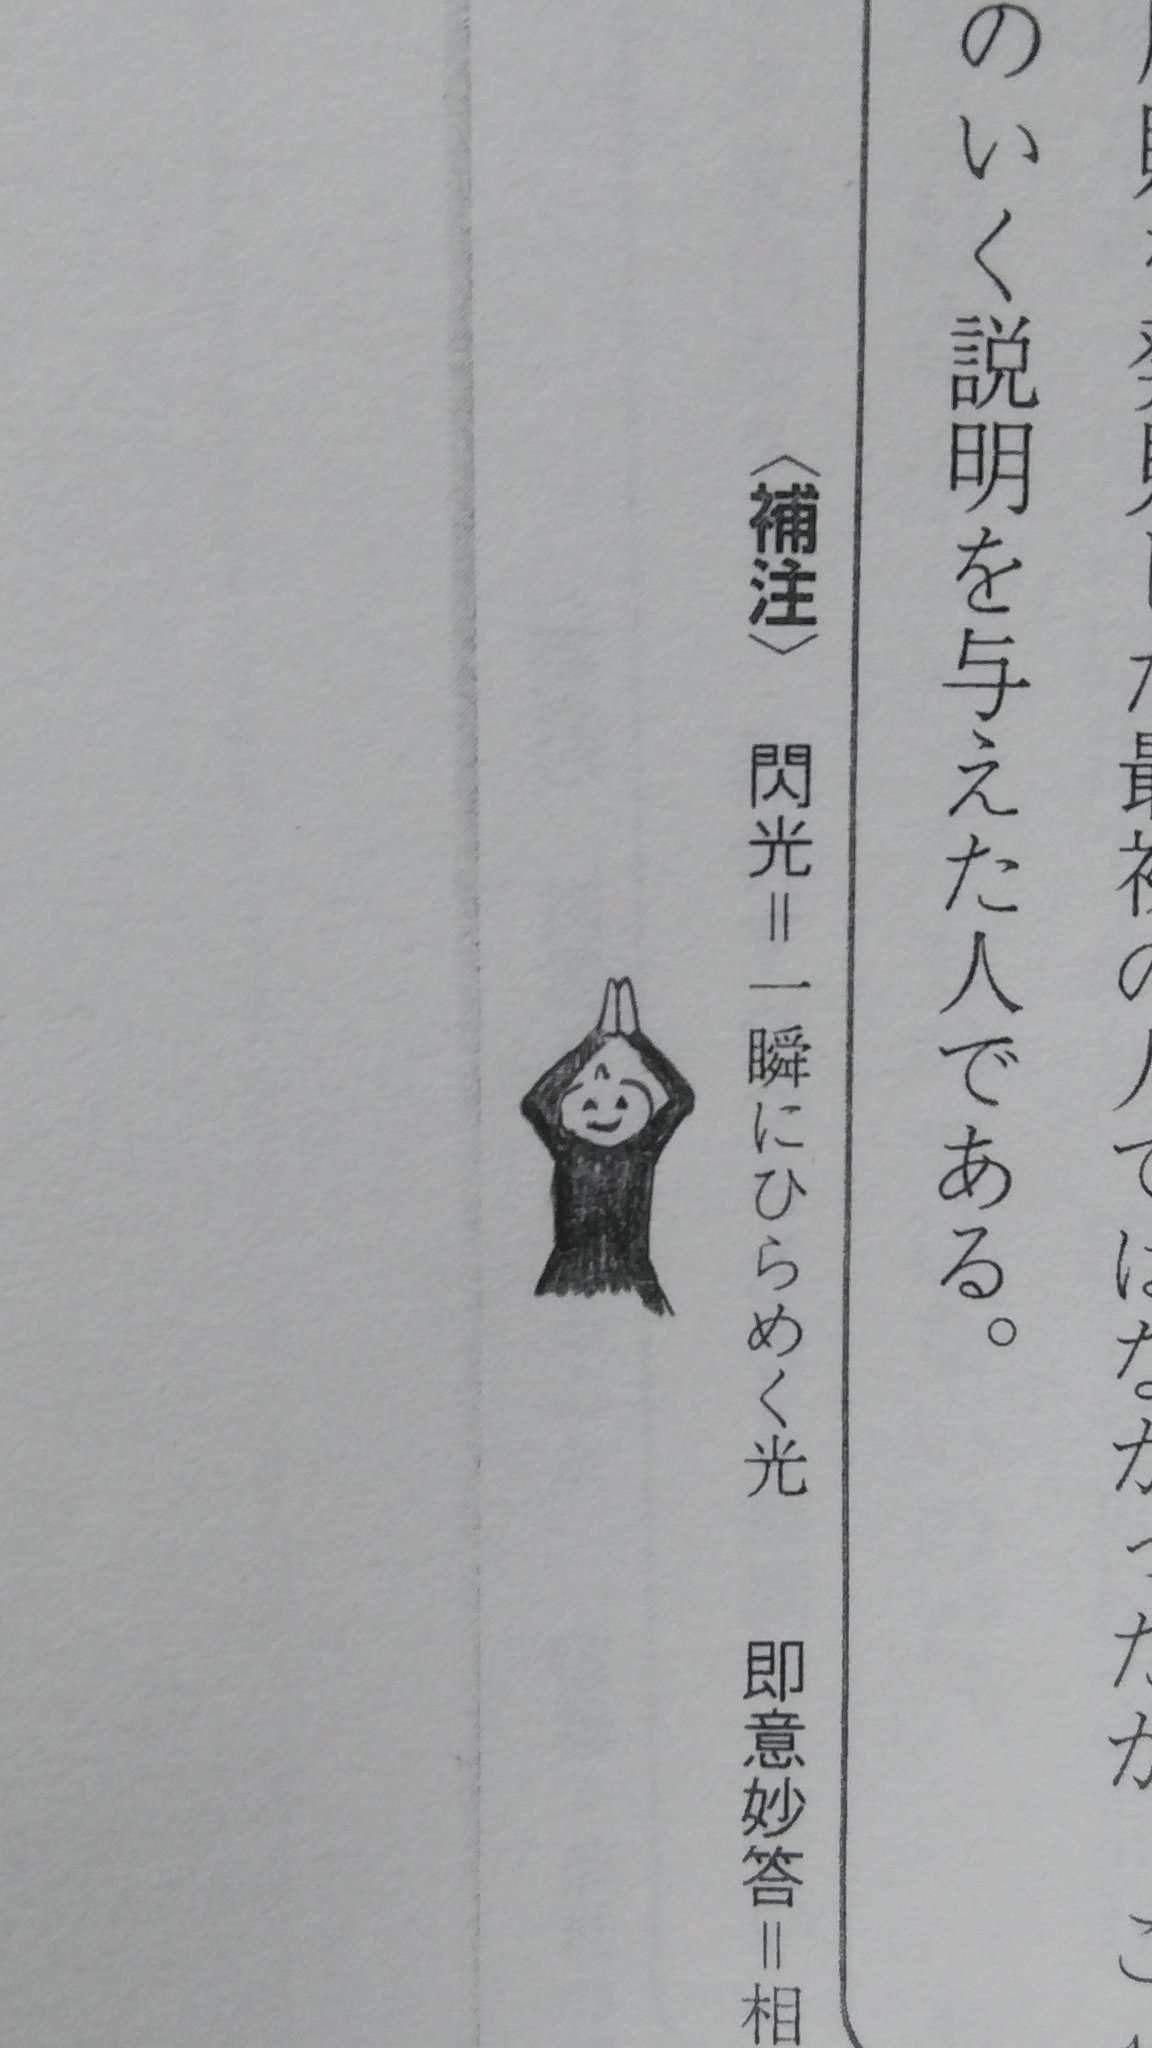 最初の人ではなかったか
のいく説明を与えた人である。
〈補注〉 閃光＝一瞬にひらめく光 即意妙答＝相